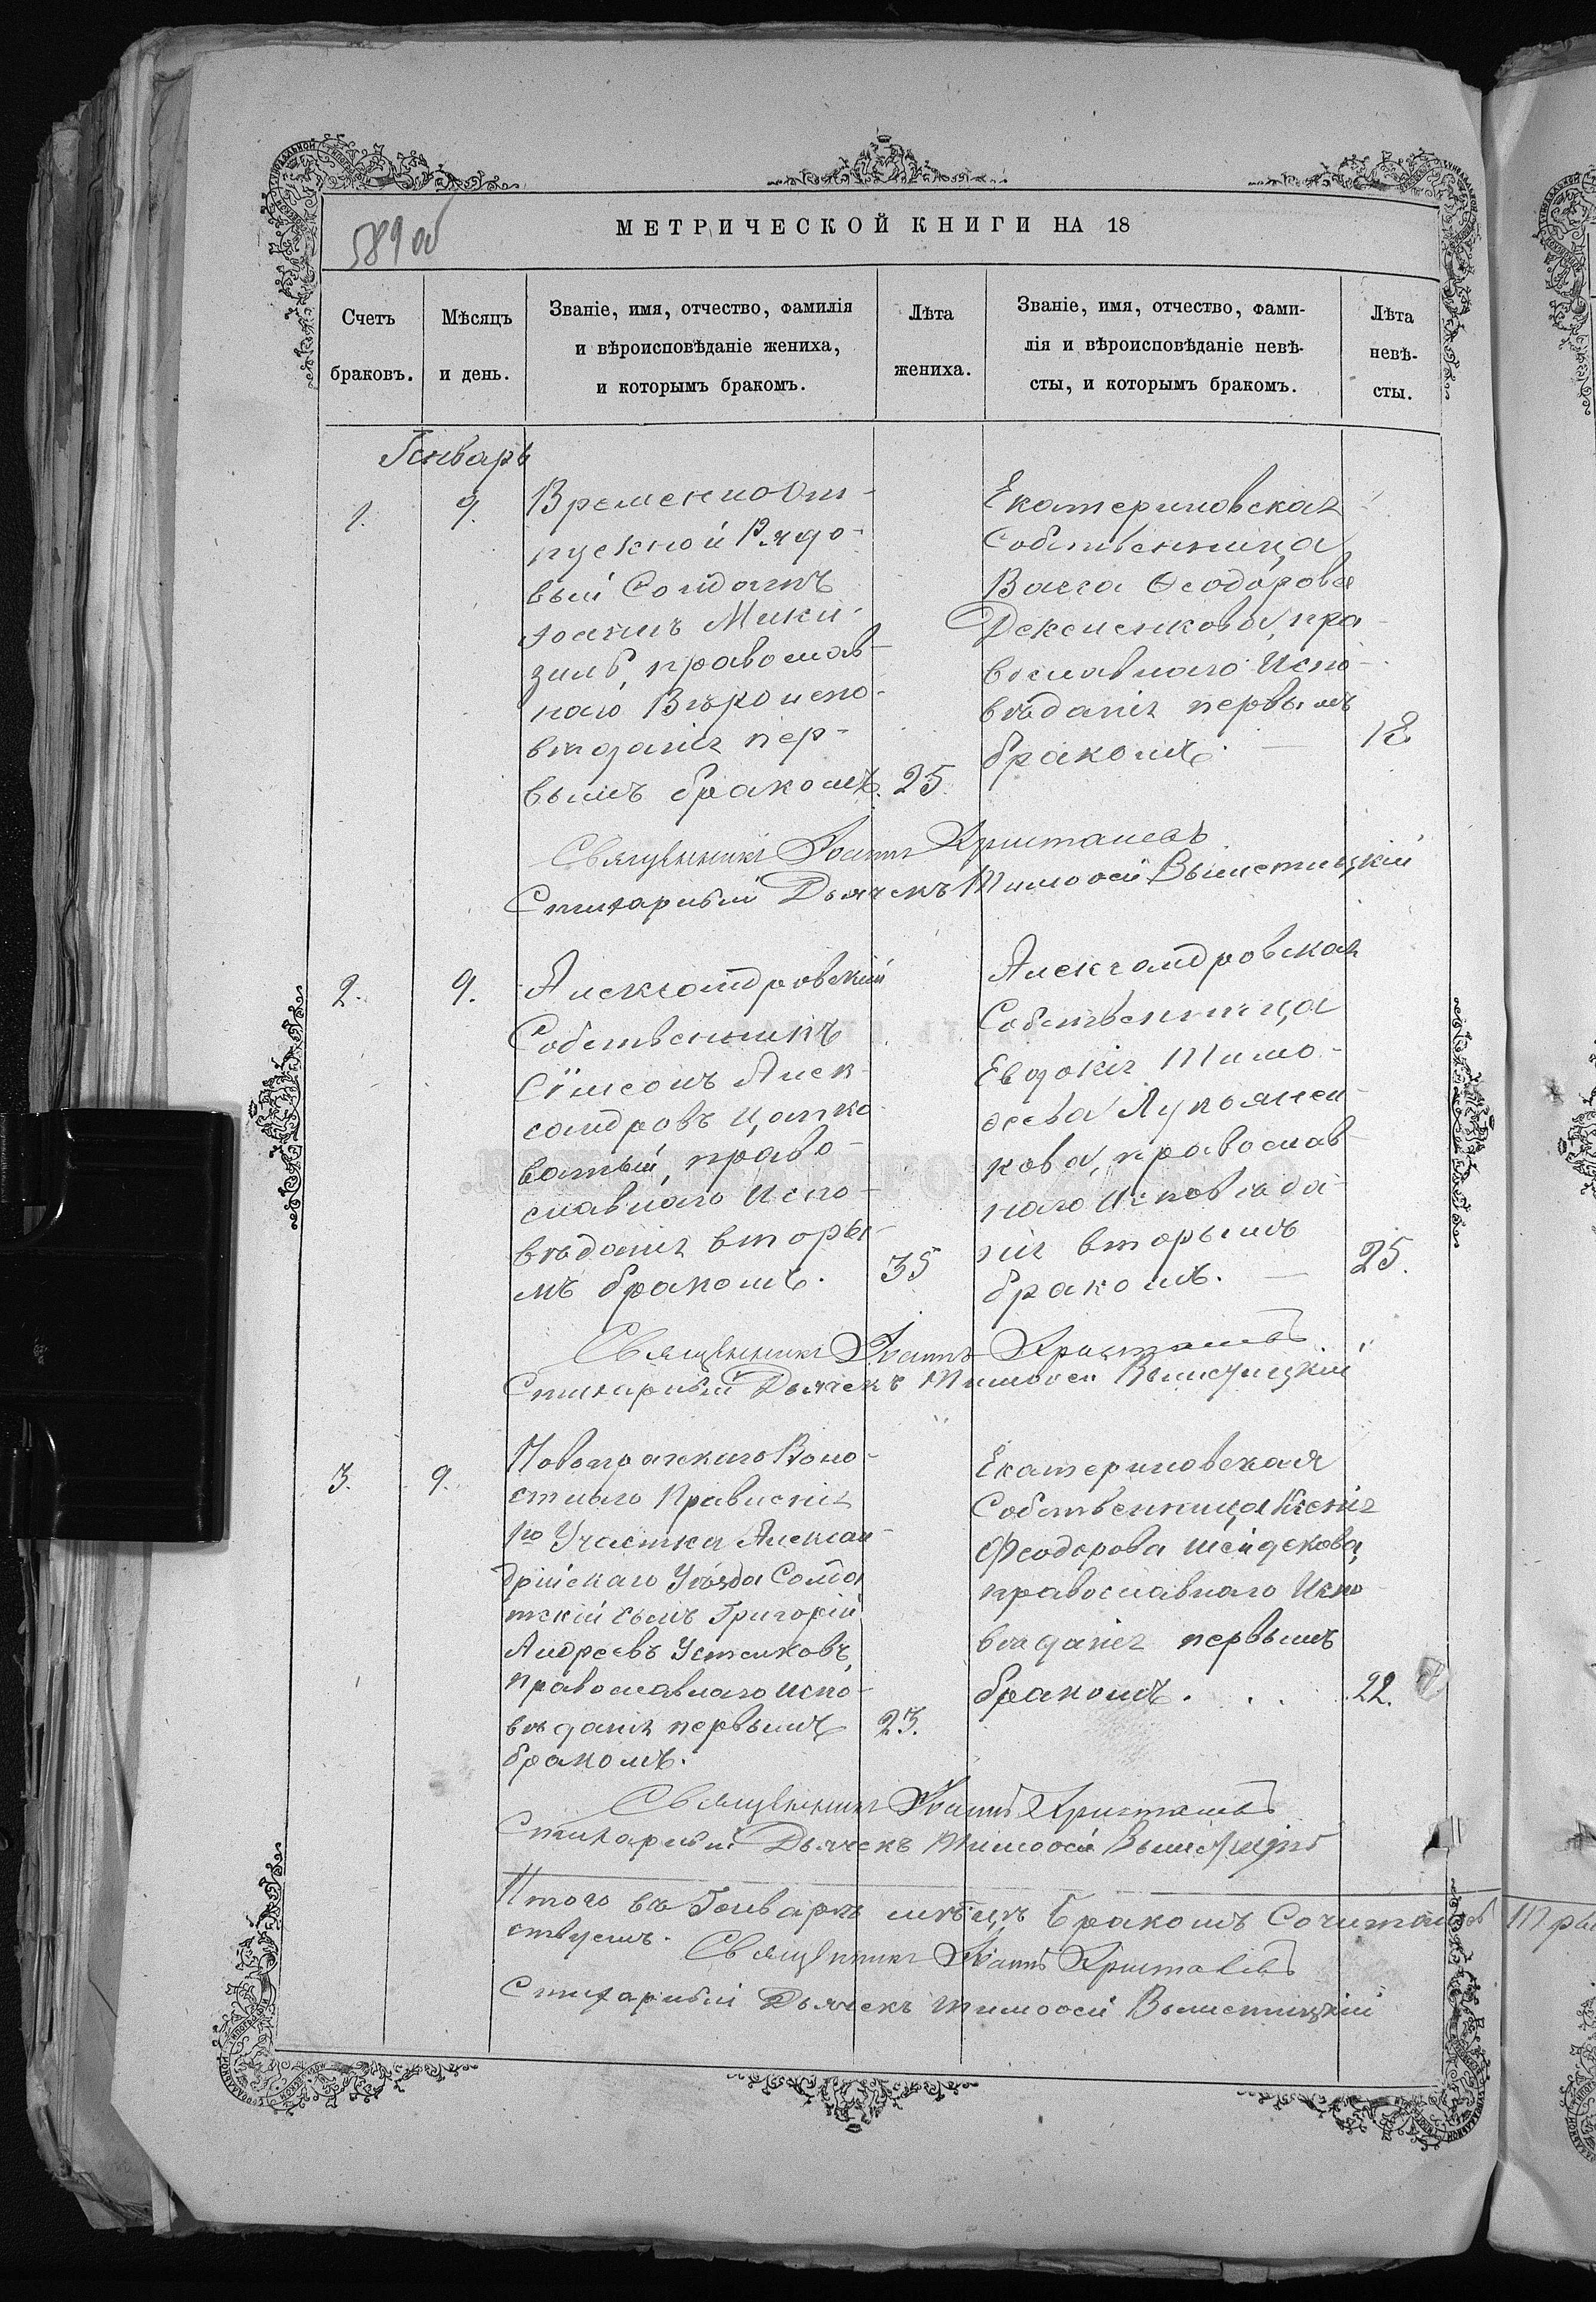 589 об
МЕТРИЧЕСКОЙ КНИГИ НА 18
Счетъ браковъ.
Мѣсяцъ и день.
Званіе, имя, отчество, фамилія
и вѣроисповѣданіе жениха,
и которымъ бракомъ.
Лѣта жениха.
Званіе, имя, отчество, фами-
лія и вѣроисповѣданіе невѣ-
сты, и которымъ бракомъ.
Лѣта невѣ-
сты.
Генварь
1.
9.
Временно От-
пускной Рядо-
вый Солдатъ
Іоаннъ Мики-
зилъ, православ-
наго Вѣроиспо-
вѣданія пер-
вымъ бракомъ.
25
Екатериновская
Собственница
Васса Ѳеодорова
Дексенкова, пра-
вославнаго Испо-
вѣданія первымъ
бракомъ.
18
Священникъ Іоаннъ
Стихарный Дьячекъ Тимоѳей
2.
9.
Александровскій
Собственникъ
Сѵмеонъ Алек-
сандровъ Цапко-
ватый, право-
славнаго Испо-
вѣданія вторы-
мъ бракомъ.
35
Александровская
Собственница
Евдокія Тимо-
ѳеева Лукьянен-
кова, православ-
наго Исповѣда-
нія вторымъ
бракомъ.
25.
Священникъ Іоаннъ
Стихарный Дьячекъ Тимоѳей
3.
9.
Воло-
стнаго Правленія
1го Участка Алексан-
дрійскаго Уѣзда Солда
тскій сынъ Григорій
Андреевъ Устенковъ,
православнаго испо-
вѣданія первымъ
бракомъ.
23.
Екатериновская
Собственница Ксенія
Феодорова Шейдекова,
православнаго Испо
вѣданія первымъ
бракомъ.
22.
Священникъ Іоаннъ
Стихарный Дьячекъ Тимоѳей
Итого въ Генварѣ мѣсяцѣ Бракомъ Сочитан
ствуемъ.
Священникъ Іоаннъ
Стихарный Дьячекъ Тимоѳей